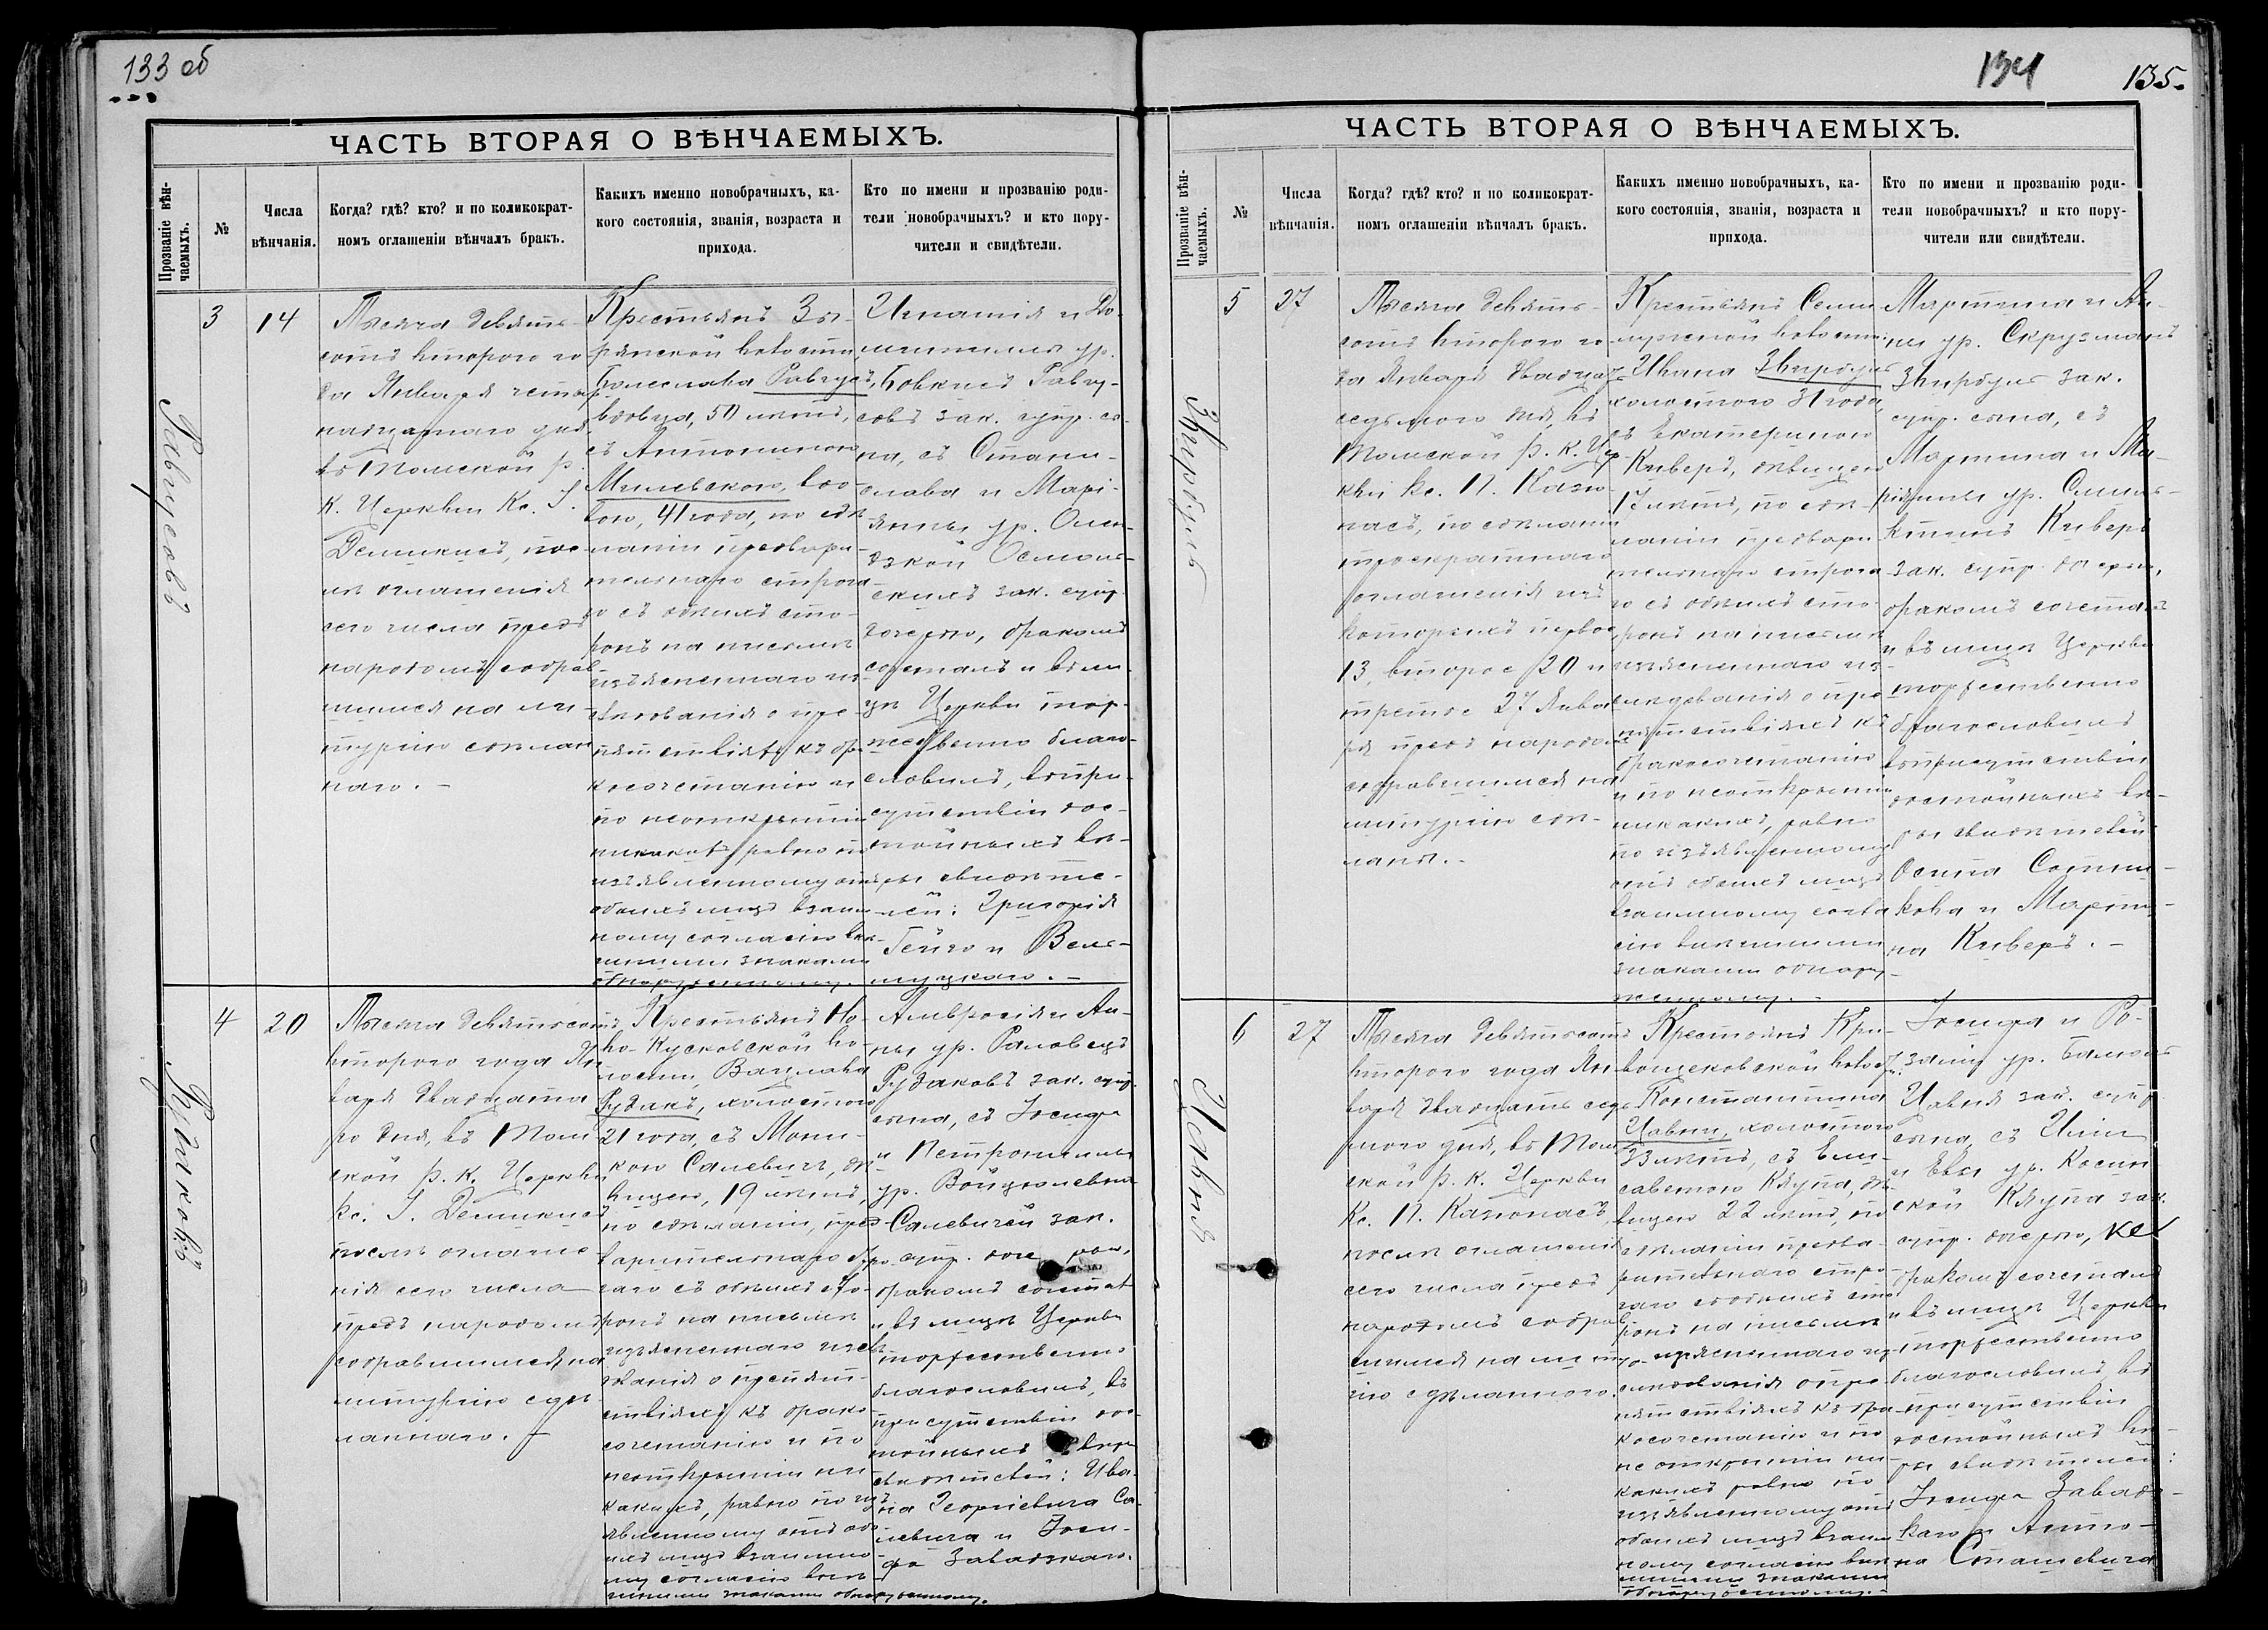 133 об
ЧАСТЬ ВТОРАЯ О ВѢНЧАЕМЫХЪ.
Прозваніе вѣн-
чаемыхъ.
№
Числа
вѣнчанія.
Когда? гдѣ? кто? и по коликократ-
номъ оглашеніи вѣнчалъ бракъ.
Какихъ именно новобрачныхъ, ка-
кого состоянія, званія, возраста и
прихода.
Кто по имени и прозванію роди-
тели новобрачныхъ? и кто пору-
чители и свидѣтели.
3
14
Тысяча девять-
сотъ второго го-
да Января четыр-
надцатаго дня
въ Томской р.
к. Церкви Кс. I.
Демикисъ, пос-
лѣ оглашенія
сего числа предъ
народомъ собрав-
шимся на ли-
тургію сдѣлан
наго. -
Крестьянъ Зы-
рянской волости
Болеслава
вдовца, 50 лѣтъ,
съ Антониною
Милевскою, вдо-
вою, 41 года, по сдѣ-
ланіи предвари
тельнаго строга
го съ обѣихъ сто-
ронъ на письмѣ
изъясненнаго из-
слѣдованія о пре-
пятствіяхъ къ бра
косочетанію и
по неоткрытіи
никакихъ, равно по
изъявленному отъ
обоихъ лицъ взаим
ному согласію внѣ-
шними знаками
обнаруженному.
Игнатія и До-
ур.
зак. супр. сы-
на, съ Стани-
слава и Марі-
анны ур.
скихъ зак. супр.
дочерью, бракомъ
сочеталъ и въ ли-
цѣ Церкви тор-
жественно благо-
словилъ, въ при-
сутствіи дос-
тойныхъ вѣ-
ры свидѣте-
лей: Григорія
Гейго и
4
20
Тысяча девятьсотъ
второго года Ян
варя двадцата
го дня, въ Том
ской р. к. Церкви
Кс. I. Демикисъ
послѣ оглаше
нія сего числа
предъ народомъ
собравшимся на
литургію сдѣ-
ланнаго. -
Крестьянъ Но-
во-Кусковской во-
лости, Вацлава
Рудакъ, холостого
21 года, съ Мони-
кою Салевичъ, дѣ
вицею, 19 лѣтъ,
по сдѣланіи, пред
варительнаго стро
гаго съ обѣихъ сто-
ронъ на письмѣ
изъясненнаго изслѣ
дованія о препят-
ствіяхъ къ брако
сочетанію и по
неоткрытіи ни-
какихъ, равно по изъ
явленному отъ обо
ихъ лицъ взаимно
му согласію внѣ
шними знаками обнаруженному.
Амвросія и Ан-
ны ур.
Рудаковъ зак. супр.
сына, съ Іосифа
и Петронеллы
ур.
Салевичей зак.
супр. дочерью,
бракомъ сочеталъ
и въ лицѣ Церкви
торжественно
благословилъ, въ
присутствіи дос
тойныхъ вѣры
свидѣтелей: Ива-
на Георгіевича Са-
левича и Іоси-
фа Завадзкаго.
134
135.
ЧАСТЬ ВТОРАЯ О ВѢНЧАЕМЫХЪ.
Прозваніе вѣн-
чаемыхъ.
№
Числа
вѣнчанія.
Когда? гдѣ? кто? и по коликократ-
номъ оглашеніи вѣнчалъ бракъ.
Какихъ именно новобрачныхъ, ка-
кого состоянія, званія, возраста и
прихода.
Кто по имени и прозванію роди-
тели новобрачныхъ? и кто пору-
чители или свидѣтели.
Звирбуль
5
27
Тысяча девять-
сотъ второго го-
да Января двадцать
седьмого дня, въ
Томской р. к. Цер-
кви Кс. П. Казю-
насъ, по сдѣланіи
троекратнаго
оглашенія изъ
которыхъ первое
13, второе 20 и
третье 27 Янва
ря предъ народомъ
собравшимся на
литургію сдѣ-
ланы. -
Крестьянъ Семи
лужской волости
Ивана Звирбуль
холостого 31 года,
съ Екатериною
Киверъ, дѣвицею
17 лѣтъ, по сдѣ-
ланіи предвари
тельнаго строга
го съ обѣихъ сто
ронъ на письмѣ
изъясненнаго из-
слѣдованія о пре
пятствіяхъ къ
бракосочетанію
и по неоткрытіи
никакихъ, равно
по изъявленному
отъ обоихъ лицъ
взаимному согла
сію внѣшними
знаками обнару-
женному. -
Мартина и Ан-
ны ур. Скрузманъ
Звирбуль зак.
супр. сына, съ
Мартина и Ма-
ріанны ур.
Киверъ
зак. супр. дочерью,
бракомъ сочеталъ
и въ лицѣ Церкви
торжественно
благословилъ
въ присутствіи
достойныхъ вѣ-
ры свидѣтелей
Осипа Сотни-
кова и Марти-
на Киверъ. -
6
27
Тысяча девятьсотъ
второго года Ян
варя двадцать седь
мого дня, въ Том
ской р. к. Церкви
Кс. П. Казюнасъ,
послѣ оглашенія
сего числа предъ
народомъ собрав
шимся на литур-
гію сдѣланнаго.
Крестьянъ Кри-
вощековской волости
Константина
холостого
23 лѣтъ, съ Ели-
саветою Кяупа, дѣ
вицею 22 лѣтъ, по
сдѣланіи предва-
рительнаго стро-
гаго съ обѣихъ сто
ронъ на письмѣ
изъясненнаго из-
слѣдованія о пре
пятствіяхъ къ бра
косочетанію и по
не открытіи ни-
какихъ равно по
изъявленному отъ
обоихъ лицъ взаим
ному согласію внѣ
шними знаками
обнаруженному. -
Іосифа и Ро-
заліи ур.
зак. супр.
сына, съ
и Евы ур.
Кяупа зак.
супр. дочерью,
бракомъ сочеталъ
и въ лицѣ Церкви
торжественно
благословилъ, въ
присутствіи
достойныхъ вѣ-
ры свидѣтелей:
Іосифа Завадз-
каго и Анто-
на Сташевича